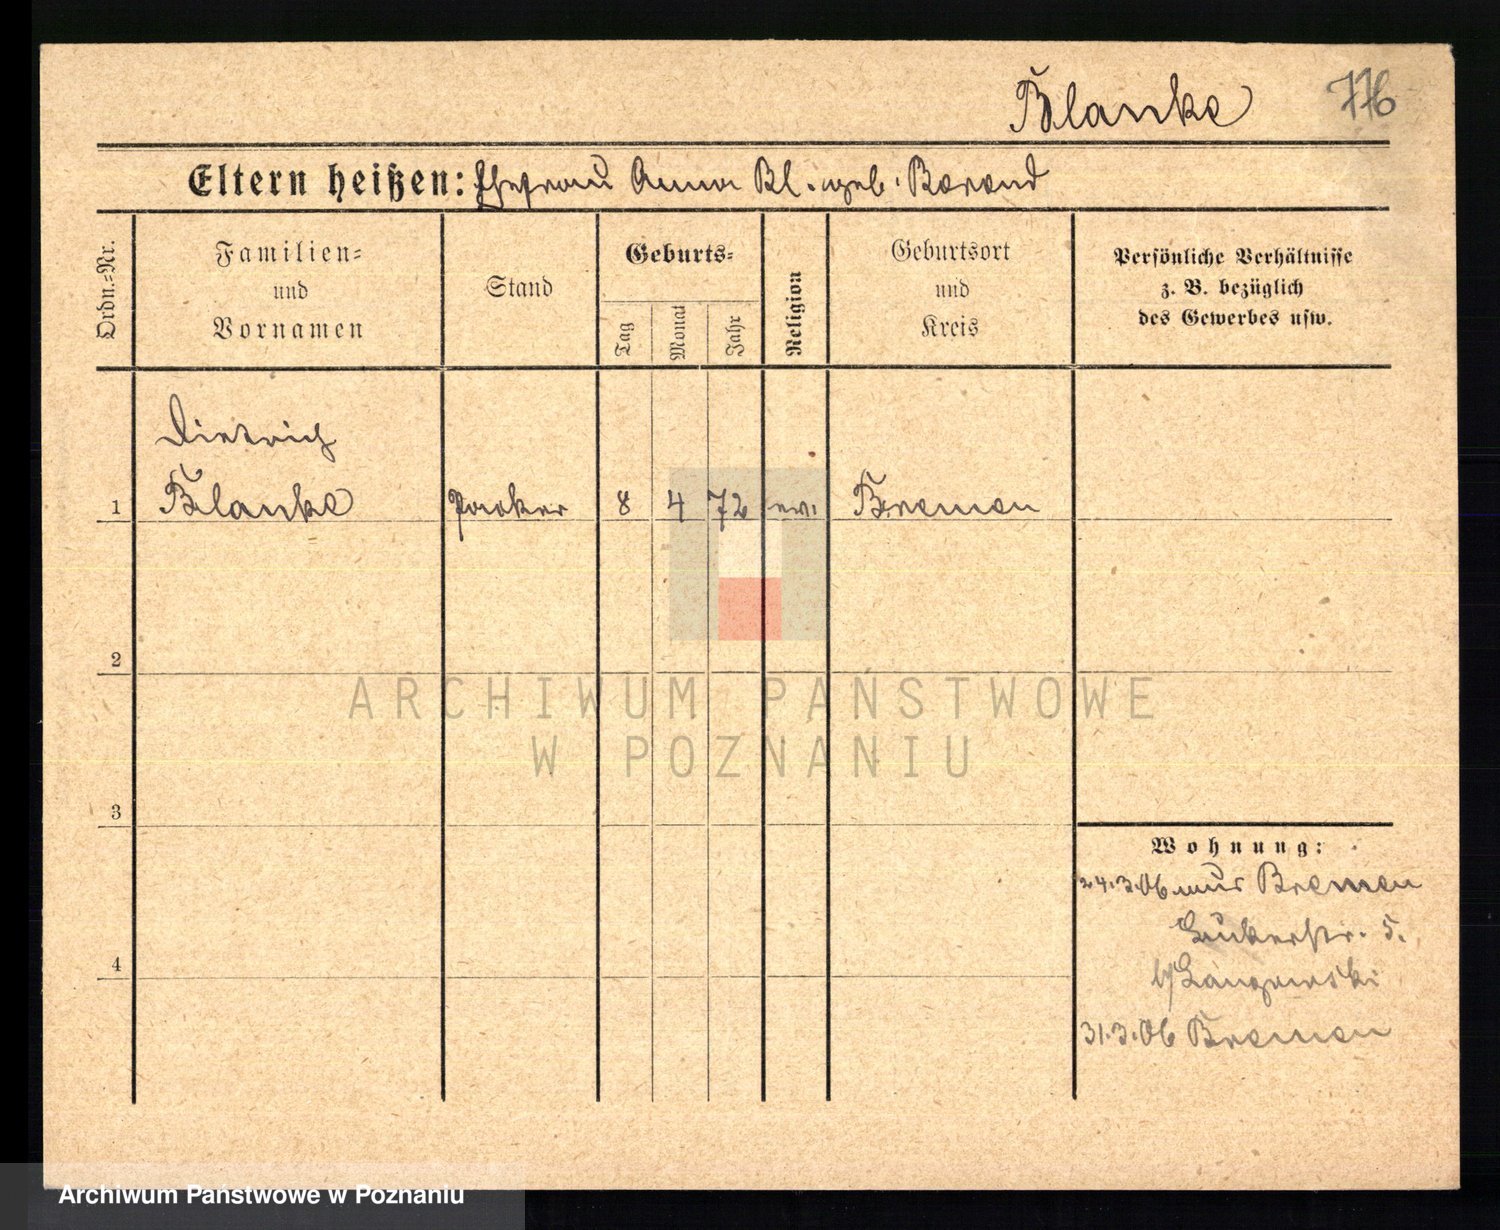 Blanke 776
Eltern heißen: Ehefrau Anna Bl. geb. Barand
Ordn.-Nr.
Familien-
und
Vornamen
Stand
Geburts-
Tag
Monat
Jahr
Religion
Geburtsort
und
Kreis
Persönliche Verhältnisse
z. B. bezüglich
des Gewerbes usw.
Dietrich
1 Blanke Packer 8 4 72 ev. Bremen
2
3
4
Wohnung:
24.3.06 aus Bremen
5.
31.3.06 Bremen
ARCHIWUM PAŃSTWOWE
W POZNANIU
Archiwum Państwowe w Poznaniu